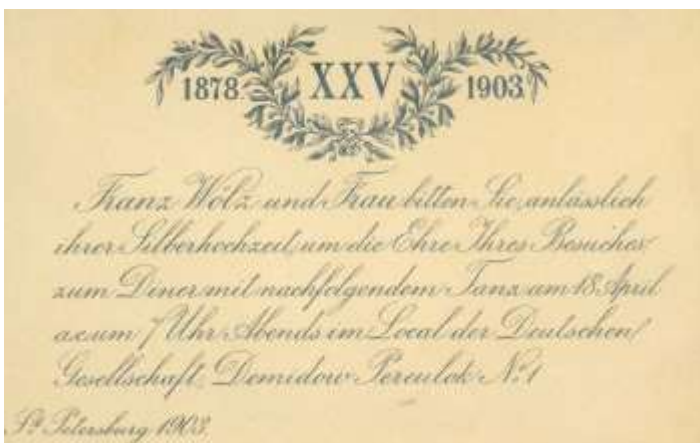 1878. XXV 1903
Franz Wölz und Frau bitten Sie, anlässlich
ihrer Silberhochzeit, um die Ehre Ihres Besuches
zum Diner mit nachfolgendem Tanz am 18 April
a.c. um 7 Uhr Abends im Local der Deutschen
Gesellschaft, Demidow Pereulok No. 1
St. Petersburg 1903.